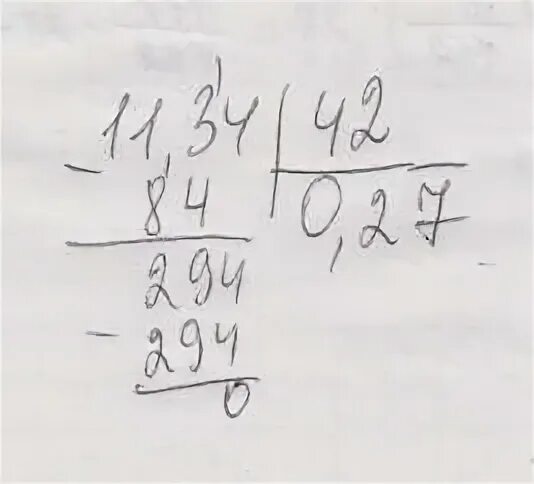 11,34 | 42
- 84 0,27
294
- 294
0